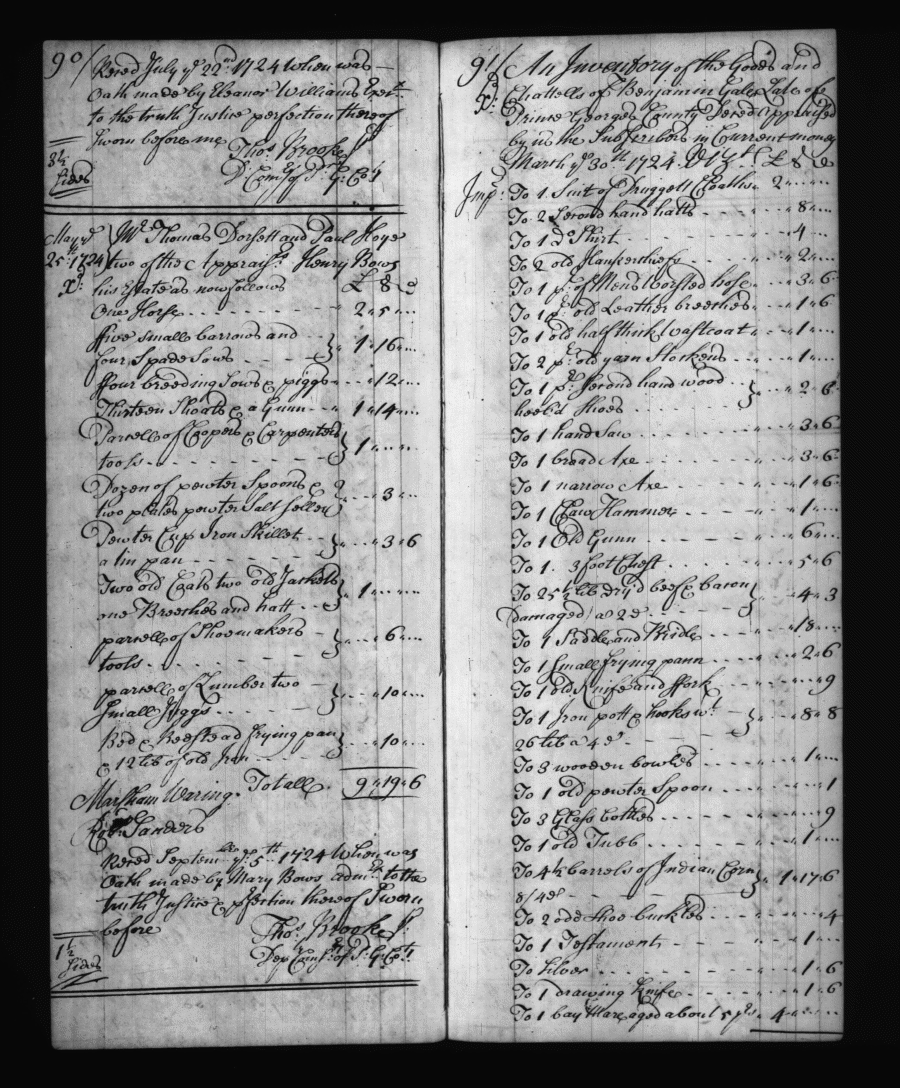 90/ Recd July ye 22nd 1724 When was
Oath made by Eleanor Williams Exec.
to the truth Justice perfection thereof
Sworn before me
Thos. Brooke Jr
Dp Comisy of Pr G: Coty
3½ Sides
May ye 25th 1724
Mr Thomas Dorsett and Paul Hoye
two of the Apprais.rs Henry Bows
his Estate as now follows £ S d
Xd:
One Horse - - - 2 " 5 " ...
ffive small barrows and
four Spade Sows - - - } 1 " 16 " ...
ffour breeding Sows & piggs - - " 12 " ...
Thirteen Shoats & a Gunn - - 1 " 14 " ...
Parcell of Coopers & Carpenters
tools - - - } 1 " ... " ...
Dozen of pewter Spoons &
two plates pewter Salt seller } " 3 " ...
Pewter Cup Iron Skillet
a tin pan - - - } " 3 " 6
Two old Coats two old Jackets
one Breeches and hatt - - } 1 " ... " ...
parcell of Shoemakers
tools - - - } " 6 " ...
parcell of Lumber two
Small Piggs - - - } " 10 " ...
Bed & Bedstead frying pan
& 12 lib of old Iron - - } " 10 " ...
Marsham Waring. Totall. 9 " 19 " 6
Robt Sanders
Recd Septem ye 5th 1724 When was
Oath made by Mary Bows adm.x to the
truth Justice & pfection thereof Sworn
before
Thos. Brooke Jr
Dep Comsy of Pr G: Coty
1½ Sides
91/ An Inventory of the Goods and
Xd: Chattells of Benjamin Gale Late of
Prince Georges County Decd Appraised
by us the Subscribers in Current money
March ye 30th 1724 £ S d
Imps: To 1 Suit of Druggett Cloaths - 2 " ... " ...
To 2 Second hand hatts - - - " 8 " ...
To 1 do Shirt - - - " 4 " ...
To 2 old Hankerchiefs - - " 2 " ...
To 1 pr of Mens Worsted hose - " 3 " 6
To 1 pr old Leather breeches - " 1 " 6
To 1 old halfthick Wastcoat - " 1 " ...
To 2 pr old yarn Stockens - - " 1 " ...
To 1 pr Second hand wood
heel'd Shoes - - - } " 2 " 6
To 1 hand Saw - - - " 3 " 6
To 1 broad Axe - - - " 3 " 6
To 1 narrow Axe - - - " 1 " 6
To 1 Claw Hammer - - - " 1 " ...
To 1 Old Gunn - - - " 6 " ...
To 1. 3 foot Chest - - - " 5 " 6
To 25½ lib dry'd beef & bacon
Damaged / a 2d - - - } " 4 " 3
To 1 Saddle and Bridle - - " 18 " ...
To 1 Small frying pann - - " 2 " 6
To 1 old Knife and ffork - - - " 9
To 1 Iron pott & hooks wt
26 lib a 4d - - - } " 8 " 8
To 3 wooden bowles - - - " 1 " ...
To 1 old pewter Spoon - - - " 1
To 3 Glass bottles - - - " 9
To 1 old Tubb - - - " 1 " ...
To 4½ barrels of Indian Corn
8/4d - - - } 1 " 17 " 6
To 2 odd Shoo buckles - - - " 4
To 1 Testament - - - " 1 " ...
To Silver - - - " 1 " 6
To 1 drawing Knife - - - " 1 " 6
To 1 bay Mare aged about 5 yrs - 4 " ... " ...